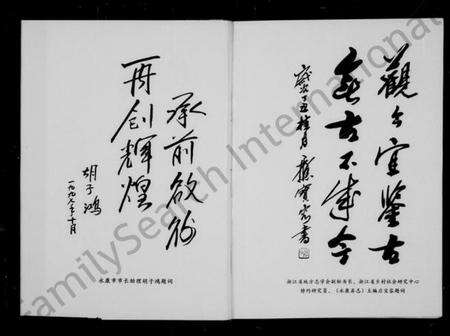 承前啟後
再創輝煌
胡子鴻
一九九七年十月
永康市市长助理胡子鸿题词
觀今宜鑒古
無古不成今
歲次丁丑桂月
書
浙江省地方志学会副秘书长、浙江省乡村社会研究中心
特约研究员、《永康县志》主编应宝容题词
FamilySearch International